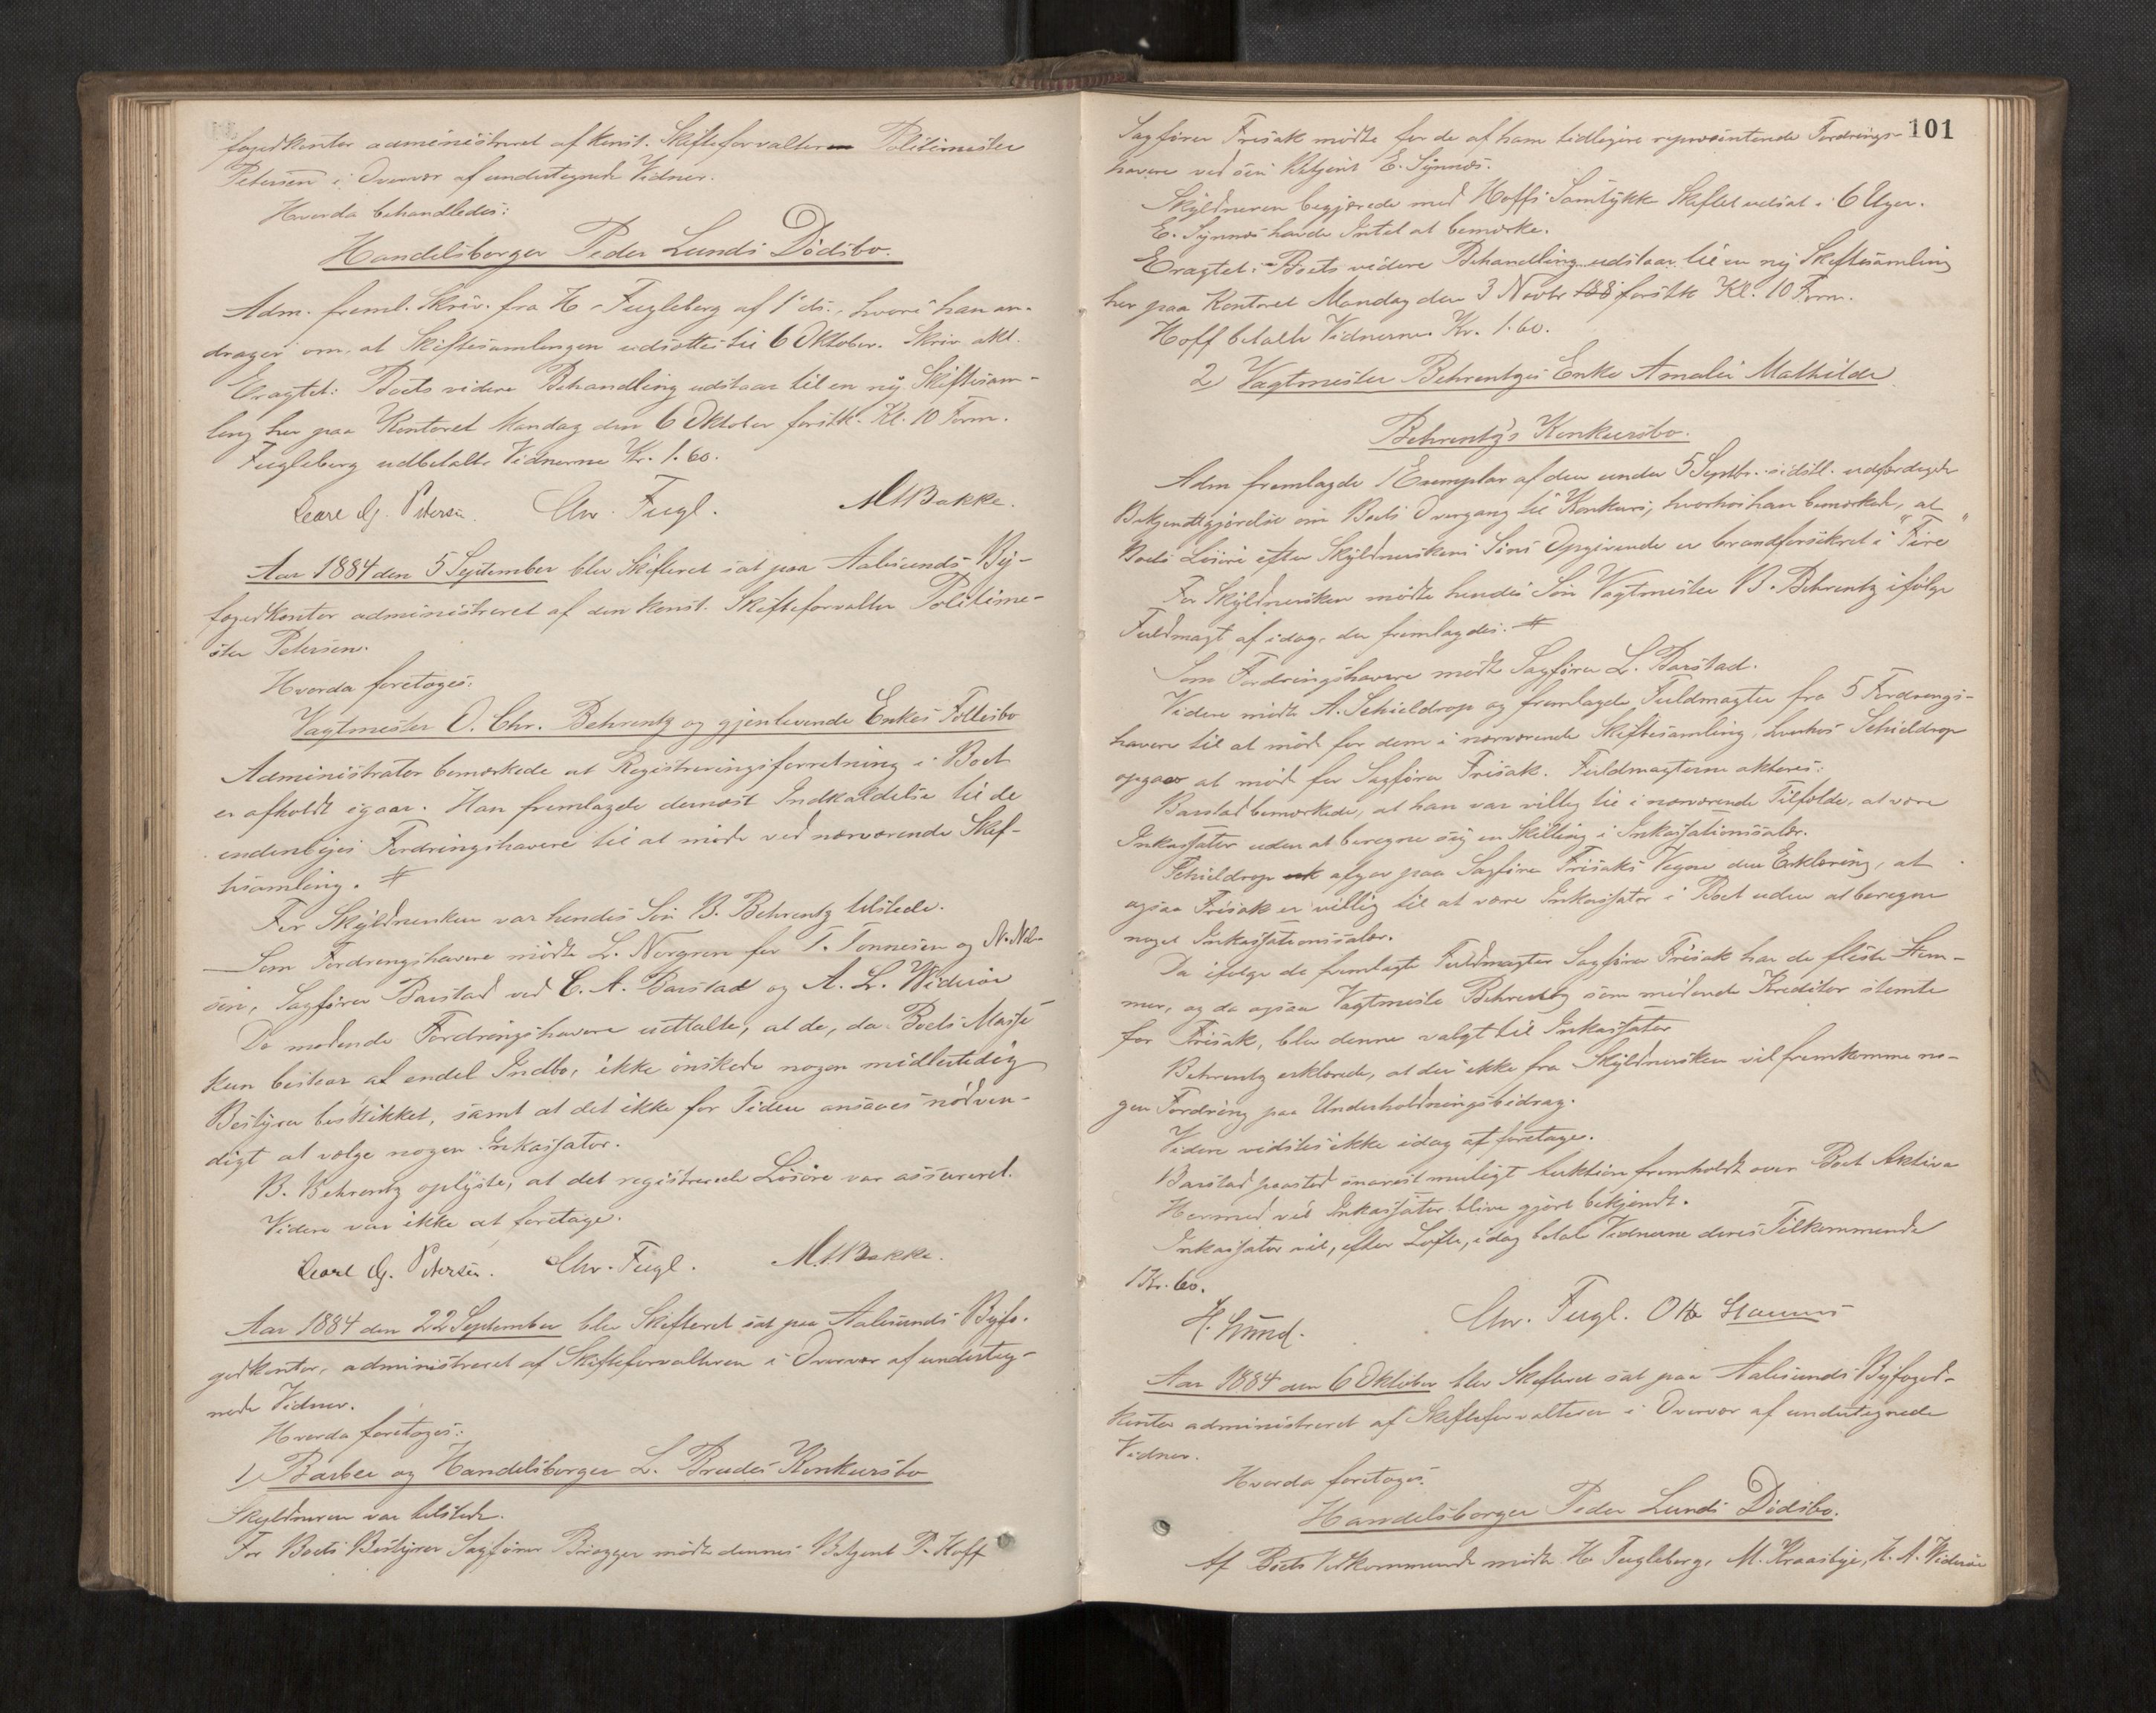 fogedkontor administreret af konst. Skifteforvalter Politimester
Petersen i Overvær af undertegnede Vidner.
Hvorda behandledes:
Handelsborger Peder Lunds Dödsbo.
Adm. freml. Skriv. fra H. Fugleberg af 1 ds., hvori han an-
drager om, at Skiftesamlingen udsættes til 6 Oktober. Skriv akt.
Eragtet: Boets videre Behandling udstaar til en ny Skiftesam-
ling her paa Kontoret Mandag den 6 Oktober førstk. Kl. 10 Form.
Fugleberg udbetalte Vidnerne Kr. 1.60.
Carl G. Petersen. Chr. Fugl. M Bakke.
Aar 1884 den 5 September blev Skifteret sat paa Aalesunds By-
fogedkontor administreret af den konst. Skifteforvalter Politime-
ster Petersen.
Hvorda foretoges:
Vagtmester O. Chr. Behrentz og gjenlevende Enkes Fællesbo
Administrator bemærkede at Registreringsforretning i Boet
er afholdt igaar. Han fremlagde dernæst Indkaldelse til de
indenbyes Fordringshavere til at möde ved nærværende Skif-
tesamling. #
For Skyldnerken var hendes Sön B. Behrentz tilstede.
Som Fordringshavere mödte L. Norgren for T. Tönnesen og N. Niel-
sen, Sagförer Barstad ved C. A. Barstad og A. L. Wideröe
De mödende Fordringshavere udtalte, at de, da Boets Masse
kun bestaar af endel Indbo, ikke önskede nogen midlertidig
Bestyrer beskikket, samt at det ikke for Tiden ansaaes nödven-
digt at vælge nogen Inkassator.
B. Behrentz oplyste, at det registrerede Lösöre var assureret.
Videre var ikke at foretage.
Carl G. Petersen. Chr. Fugl. M. Bakke.
Aar 1884 den 22 September blev Skifteret sat paa Aalesunds Byfo-
gedkontor, administreret af Skifteforvalteren i Overvær af underteg-
nede Vidner.
Hvorda foretoges:
1) Barber og Handelsborger L. Brudes Konkursbo
Skyldneren var tilstede.
For Boets Bestyrer Sagförer Brögger mödte dennes Betjent P. Hoff
101
Sagförer Frisak mödte for de af ham tidligere repræsenterede Fordrings-
havere ved sin Betjent E. Synnes.
Skyldneren begjærede med Hoffs Samtykke Skiftet udsat i 6 Uger.
E. Synnes havde Intet at bemærke.
Eragtet: Boets videre Behandling udstaar til en ny Skiftesamling
her paa Kontoret Mandag den 3 Novbr 188 førstk Kl. 10 Form.
Hoff betalte Vidnerne Kr. 1.60.
2) Vagtmester Behrentzes Enke Amalie Mathilde
Behrentz's Konkursbo.
Adm fremlagde 1 Exemplar af den under 5 Septbr. sidstl. udfærdigede
Bekjendtgjörelse om Boets Overgang til Konkurs, hvorhos han bemærkede, at
Boets Lösöre efter Skyldnerskens Söns Opgivende er brandforsikret i "Fire"
For Skyldnersken mödte hendes Sön Vagtmester B. Behrentz ifölge
Fuldmagt af idag, der fremlagdes. #
Som Fordringshavere mödte Sagförer L. Barstad.
Videre mödte A. Schieldrop og fremlagde Fuldmagter fra 5 Fordrings-
havere til at möde for dem i nærværende Skiftesamling, hvorhos Schieldrop
opgav at möde for Sagförer Frisak. Fuldmagterne akteres:
Barstad bemærkede, at han var villig til i nærværende Tilfælde, at være
Inkassator uden at beregne sig en Skilling i Inkassationssalær.
Schieldrop afgav paa Sagförer Frisaks Vegne den Erklæring, at
ogsaa Frisak er villig til at være Inkassator i Boet uden at beregne
noget Inkassationssalær.
Da ifölge de fremlagte Fuldmagter Sagförer Frisak har de fleste Stem-
mer, og da ogsaa Vagtmester Behrentz som mödende Kreditor stemte
for Frisak, blev denne valgt til Inkassator
Behrentz erklærede, at der ikke fra Skyldnersken vil fremkomme no-
gen Fordring paa Underholdningsbidrag.
Videre vidstes ikke idag at foretage.
Barstad paastod snarest muligt Auktion fremholdt over Boets Aktiva
Hermed vil Inkassator blive gjort bekjendt.
Inkassator vil, efter Löfte, idag betale Vidnerne deres Tilkommende
1 Kr. 60.
H. Lund. Chr. Fugl. Otto
Aar 1884 den 6 Oktober blev Skifteret sat paa Aalesunds Byfoged-
kontor administreret af Skifteforvalteren i Overvær af undertegnede
Vidner.
Hvorda foretoges.
Handelsborger Peder Lunds Dödsbo.
Af Boets Vedkommende mödte H. Fugleberg, M. Kraasbye, H. A. Wideröe